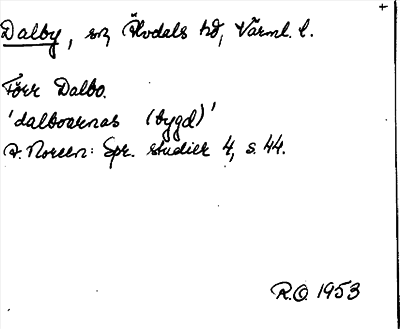 +
Dalby, sn, Älvdals hd, Värml. l.
Förr Dalbo.
'dalboarnas (bygd)'
A. Noreen: Spr. studier 4, s. 44.
R.O. 1953